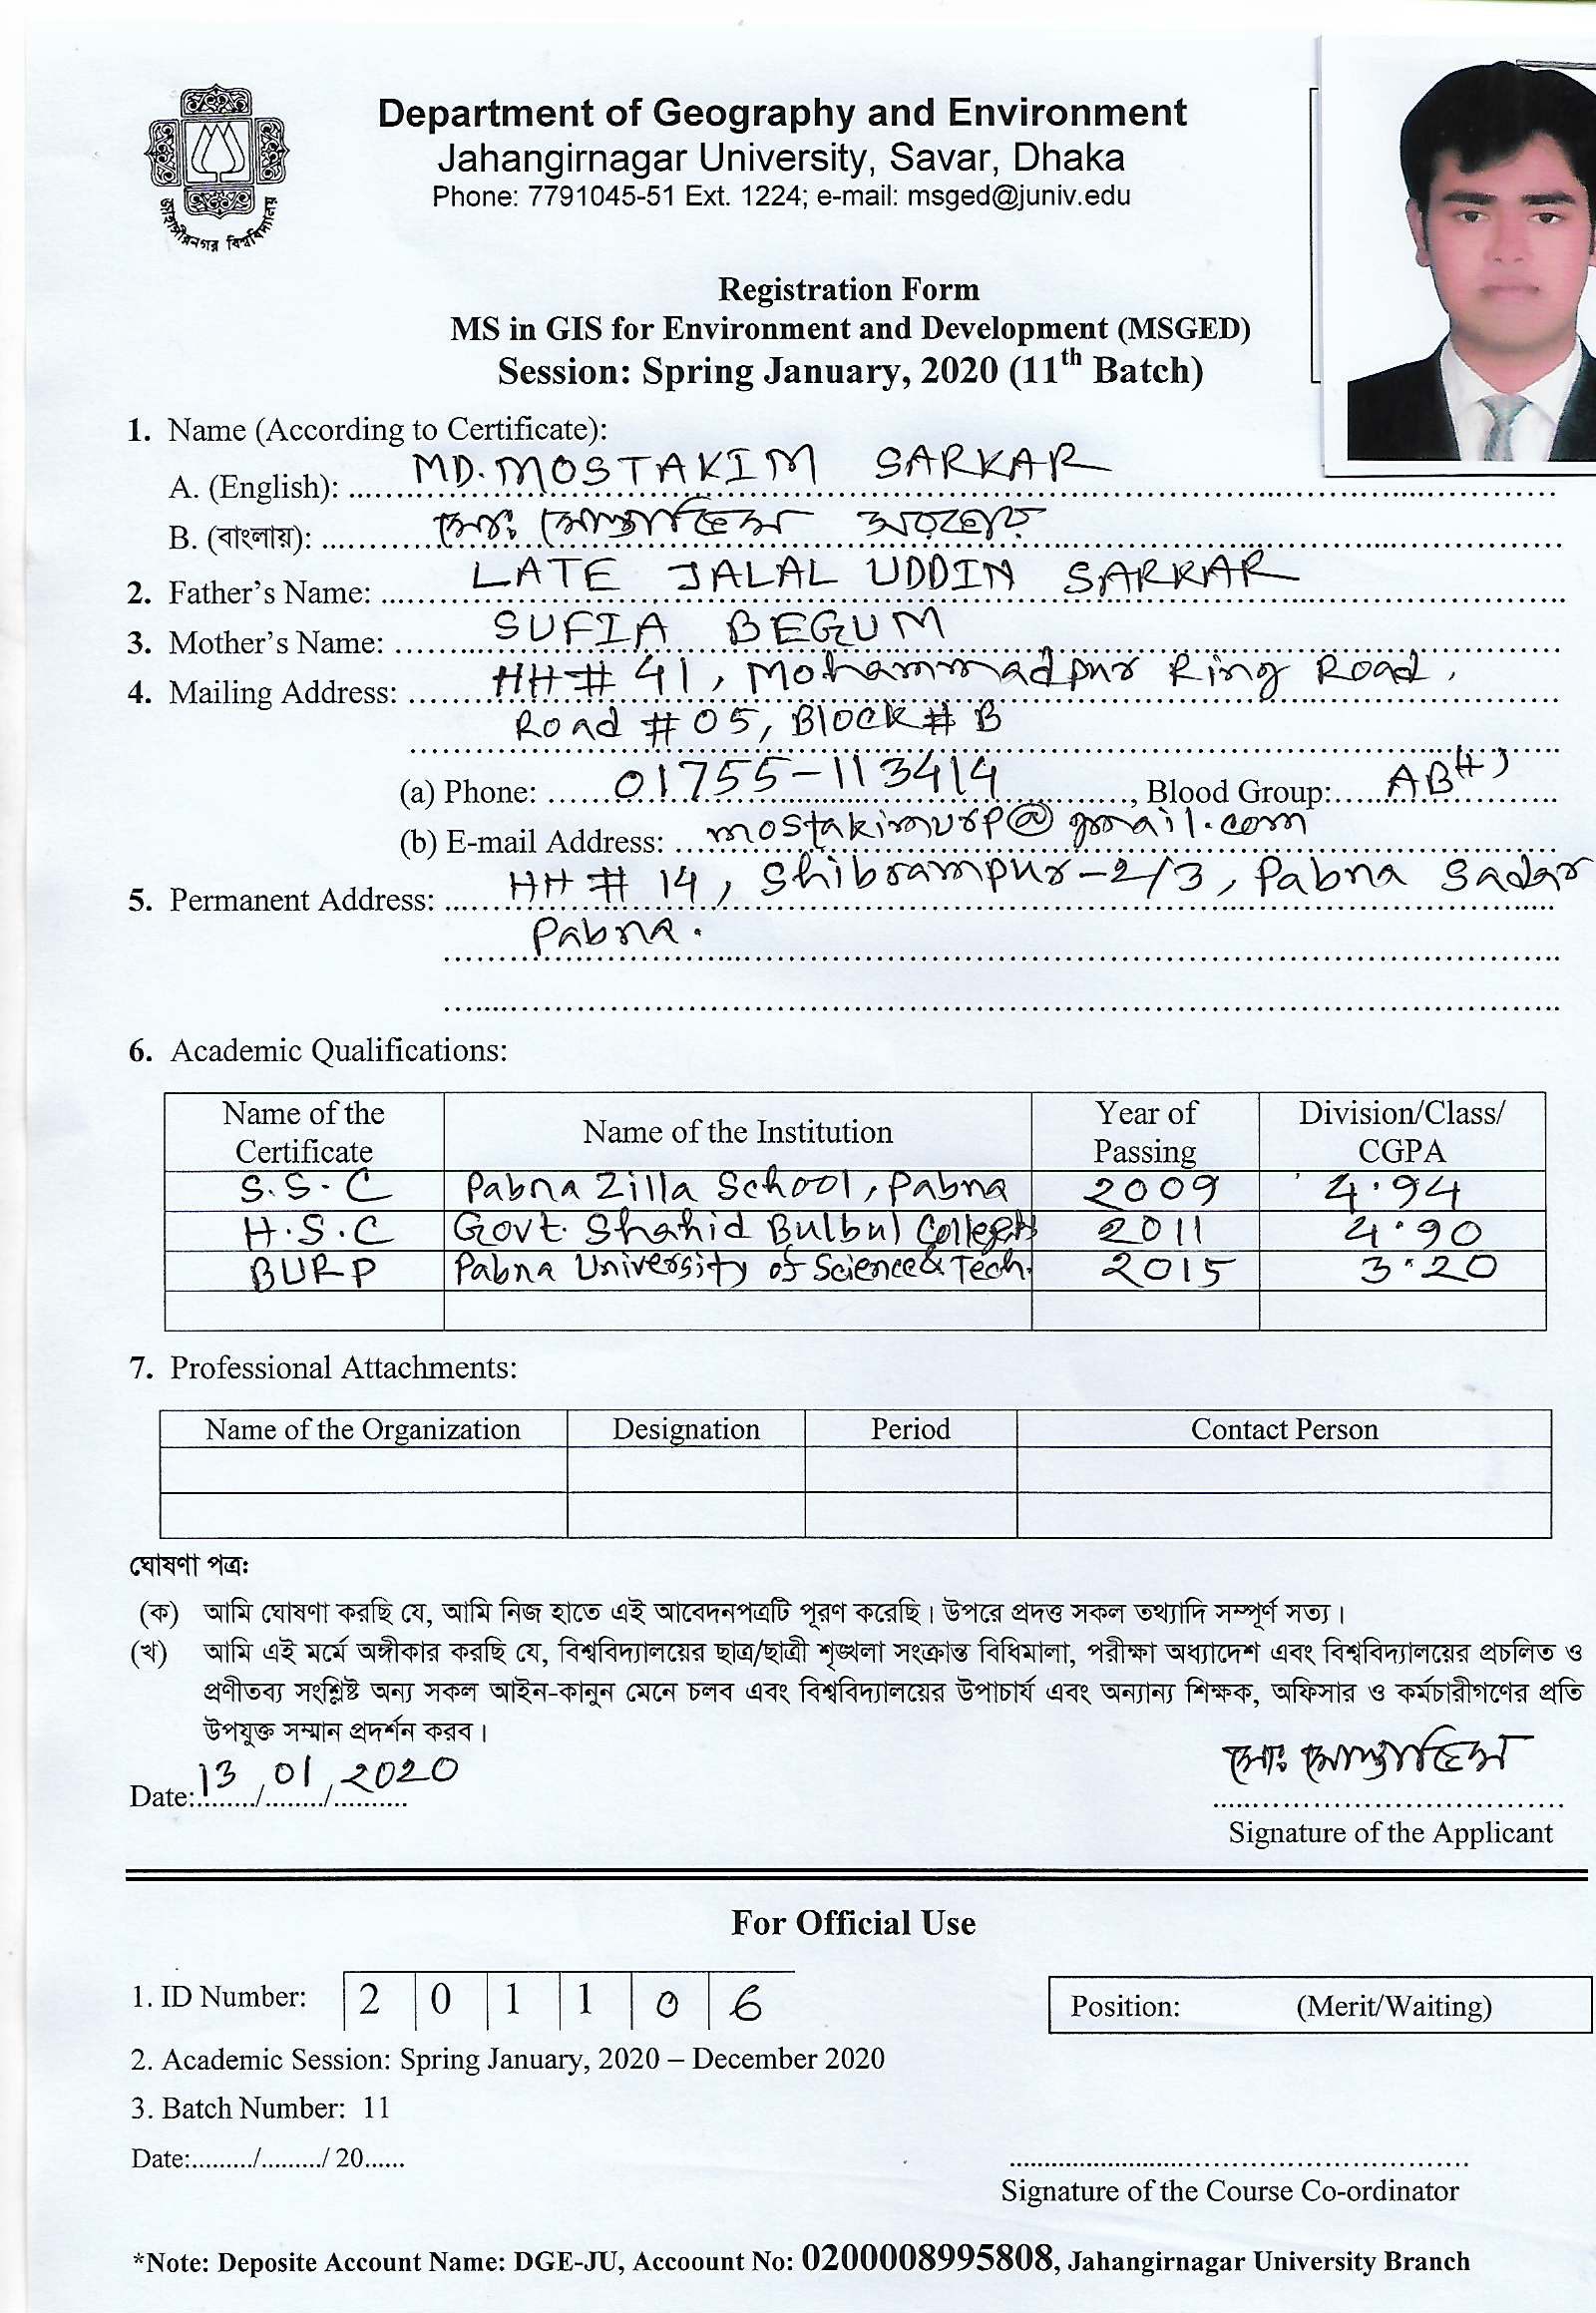 জাহাঙ্গীরনগর বিশ্ববিদ্যালয়
Department of Geography and Environment
Jahangirnagar University, Savar, Dhaka
Phone: 7791045-51 Ext. 1224; e-mail: msged@juniv.edu
Registration Form
MS in GIS for Environment and Development (MSGED)
Session: Spring January, 2020 (11th Batch)
1. Name (According to Certificate):
A. (English): MD. MOSTAKIM SARKAR
B. (বাংলায়): মোঃ মোস্তাকিম সরকার
2. Father's Name: LATE JALAL UDDIN SARKAR
3. Mother's Name: SUFIA BEGUM
4. Mailing Address: HH# 41, Mohammadpur Ring Road,
Road # 05, Block # B
(a) Phone: 01755-113414, Blood Group: AB(+)
(b) E-mail Address: mostakimurp@gmail.com
5. Permanent Address: HH # 14, Shibrampur-2/3, Pabna Sadar
Pabna.
6. Academic Qualifications:
Name of the Certificate Name of the Institution Year of Passing Division/Class/CGPA
S.S.C Pabna Zilla School, Pabna 2009 4.94
H.S.C Govt. Shahid Bulbul College 2011 4.90
BURP Pabna University of Science & Tech. 2015 3.20
7. Professional Attachments:
Name of the Organization Designation Period Contact Person
ঘোষণা পত্র:
(ক) আমি ঘোষণা করছি যে, আমি নিজ হাতে এই আবেদনপত্রটি পূরণ করেছি। উপরে প্রদত্ত সকল তথ্যাদি সম্পূর্ণ সত্য।
(খ) আমি এই মর্মে অঙ্গীকার করছি যে, বিশ্ববিদ্যালয়ের ছাত্র/ছাত্রী শৃঙ্খলা সংক্রান্ত বিধিমালা, পরীক্ষা অধ্যাদেশ এবং বিশ্ববিদ্যালয়ের প্রচলিত ও
প্রণীতব্য সংশ্লিষ্ট অন্য সকল আইন-কানুন মেনে চলব এবং বিশ্ববিদ্যালয়ের উপাচার্য এবং অন্যান্য শিক্ষক, অফিসার ও কর্মচারীগণের প্রতি
উপযুক্ত সম্মান প্রদর্শন করব।
মোঃ মোস্তাকিম
Date: 13/01/2020
Signature of the Applicant
For Official Use
1. ID Number: 2 0 1 1 0 6
Position: (Merit/Waiting)
2. Academic Session: Spring January, 2020 – December 2020
3. Batch Number: 11
Date:........./........./ 20......
Signature of the Course Co-ordinator
*Note: Deposite Account Name: DGE-JU, Accoount No: 0200008995808, Jahangirnagar University Branch